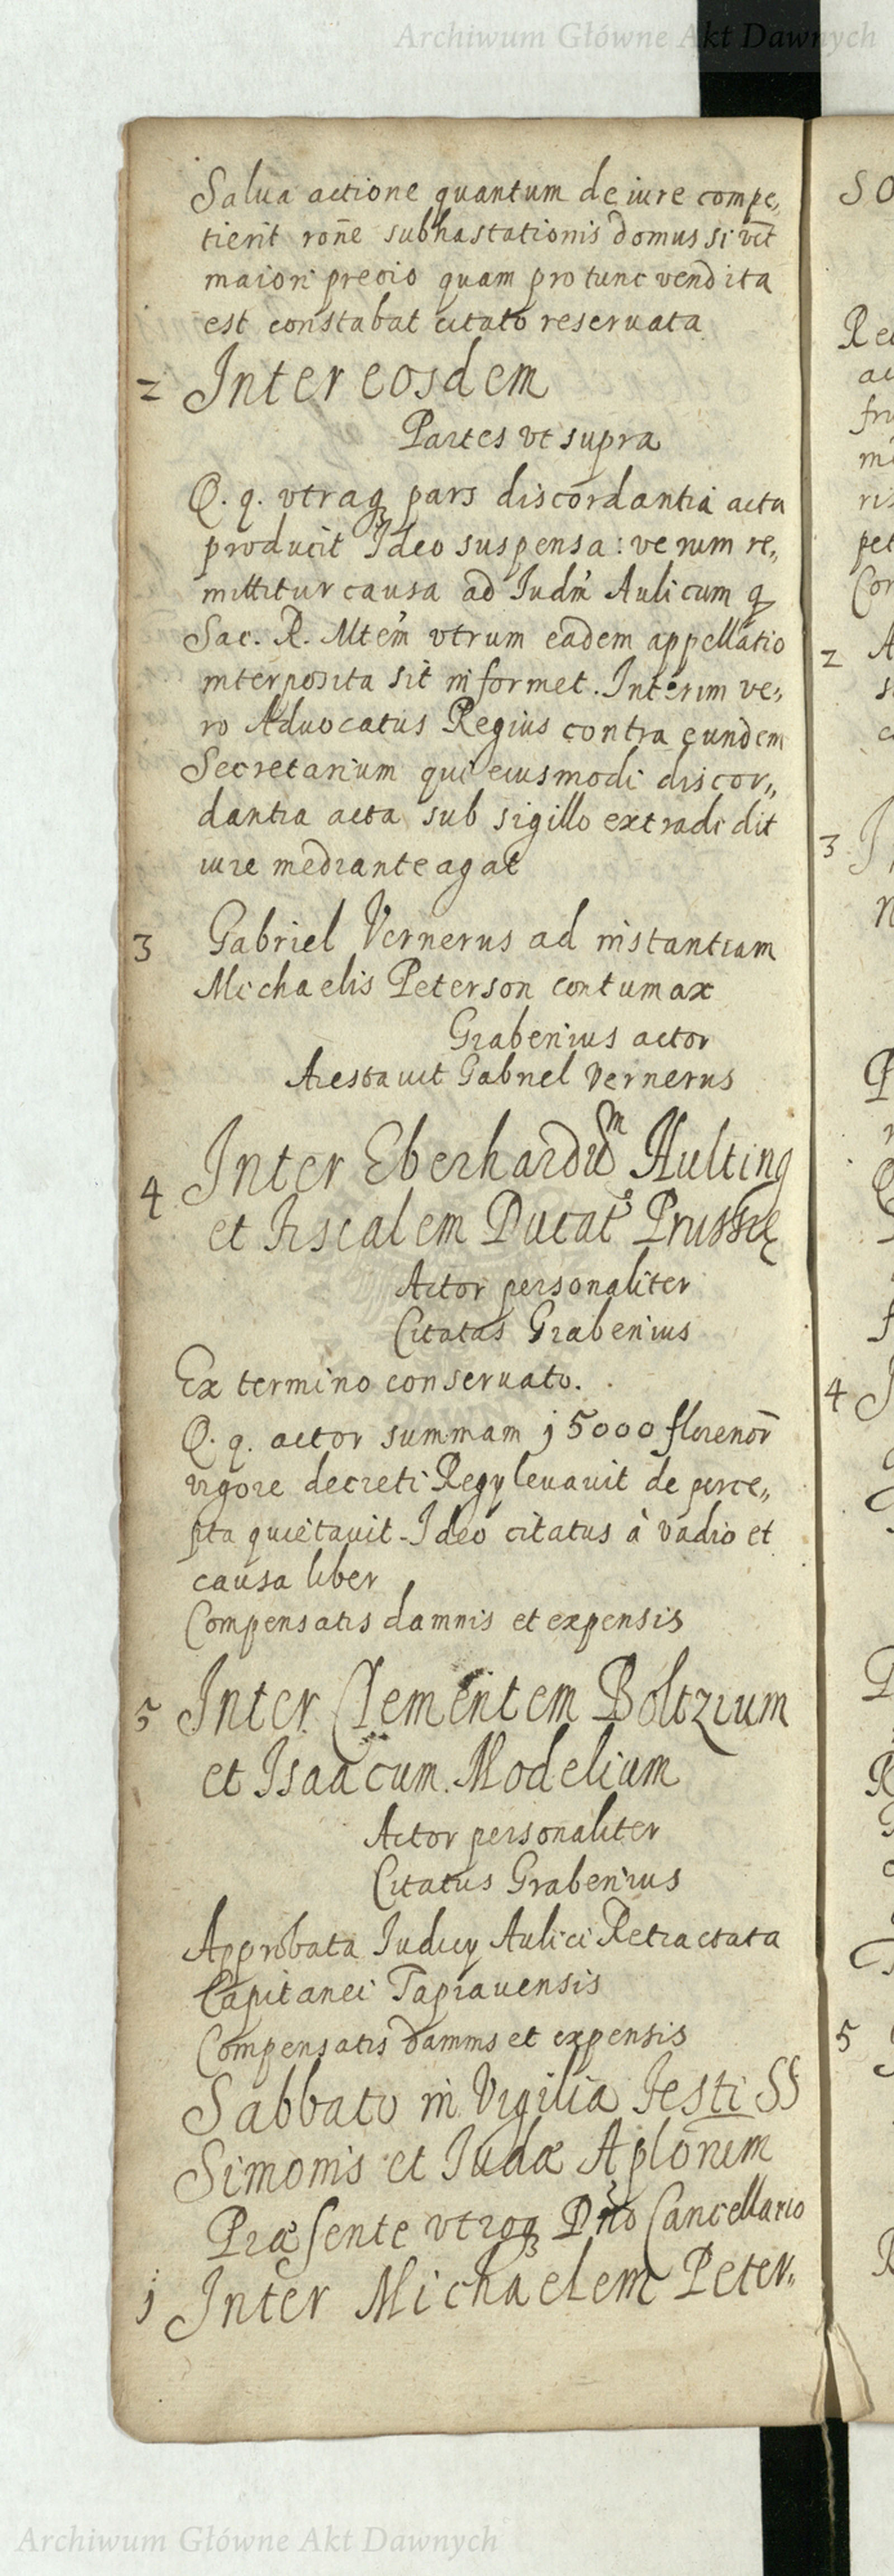 Archiwum Główne Akt Dawnych
Salua actione quantum de iure compe„
tierit rōne subhastationis domus si vēt
maiori precio quam pro tunc vendita
est constabat citato reseruata
2 Inter eosdem
Partes vt supra
Q. q. vtraqȝ pars discordantia acta
producit Ideo suspensa: verum re„
mittitur causa ad Iudm̃ Aulicum q
Sac. R. Mtem̃ vtrum eadem appellatio
interposita sit informet. Interim ve„
ro Aduocatus Regius contra eundem
Secretarium qui eiusmodi discor„
dantia acta sub sigillo extradidit
iure mediante agat
3 Gabriel Vernerus ad instantiam
Michaelis Peterson contumax
Grabenius actor
Arestauit Gabriel Vernerus
4 Inter Eberhardum Hulting
et Fiscalem Ducats Prussię
Actor personaliter
Citatus Grabenius
Ex termino conseruato.
Q. q. actor summam j5000 florenor̄
vigore decreti Regy leuauit de perce„
pta quietauit Ideo citatus à vadio et
causa liber
Compensatis damnis et expensis
5 Inter Clementem Boltzium
et Isaacum Modelium
Actor personaliter
Citatus Grabenius
Approbata Iudicy Aulici Retractata
Capitanei Tapiauensis
Compensatis damnis et expensis
Sabbato in Vigilia Festi SS
Simonis et Iudæ Aplorum
Præsente vtroqȝ Dño Cancellario
j Inter Michaelem Peter„
2
3
4
5
Archiwum Główne Akt Dawnych